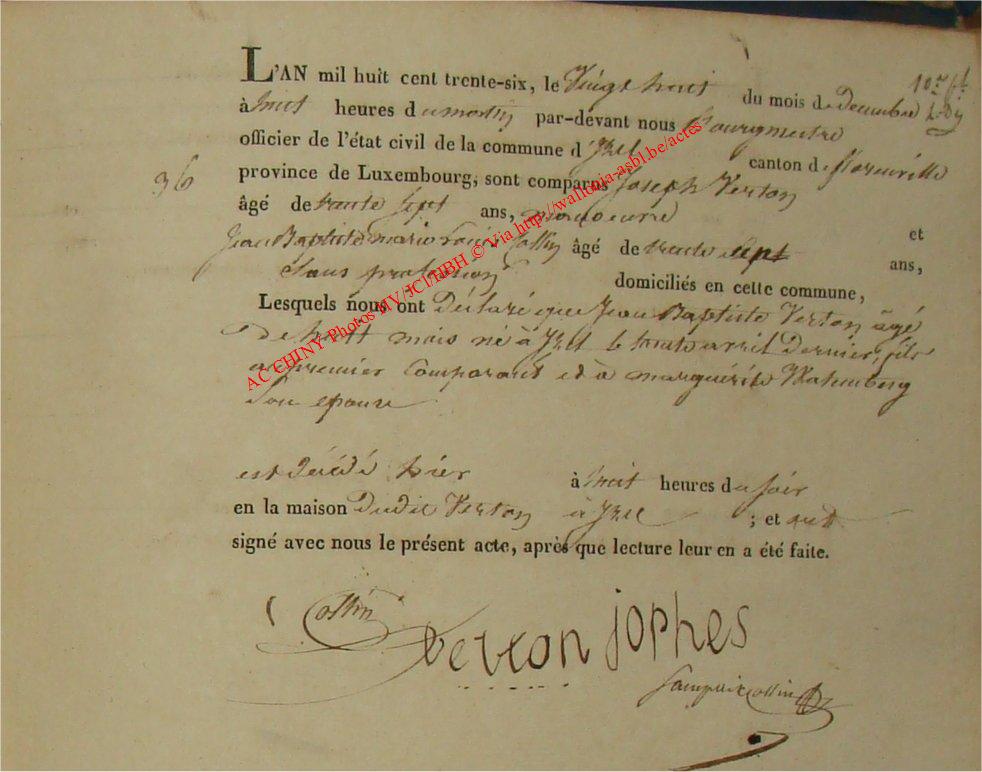 L'AN mil huit cent trente-six, le Vingt huit du mois de Decembre
à huit heures du matin par-devant nous Bourgmestre
officier de l'état civil de la commune d'Izel canton de florenville
36
province de Luxembourg, sont comparus Joseph Verton
âgé de trente sept ans, manoeuvre et
Jean Baptiste marie Louis Collin âgé de trente sept ans,
Sans profession domiciliés en cette commune,
Lesquels nous ont Déclaré que Jean Baptiste Verton âgé
de huit mois né à Izel le trente avril Dernier, fils
au premier Comparant et à marguerite Watemberg
Son epouse
est Décédé hier à huit heures du soir
en la maison Dudit Verton à Izel ; et ont
signé avec nous le présent acte, après que lecture leur en a été faite.
Collin
Verton jophes
AC CHINY Photos MV/JCI/HBH © Via http://wallonia-asbl.be/actes